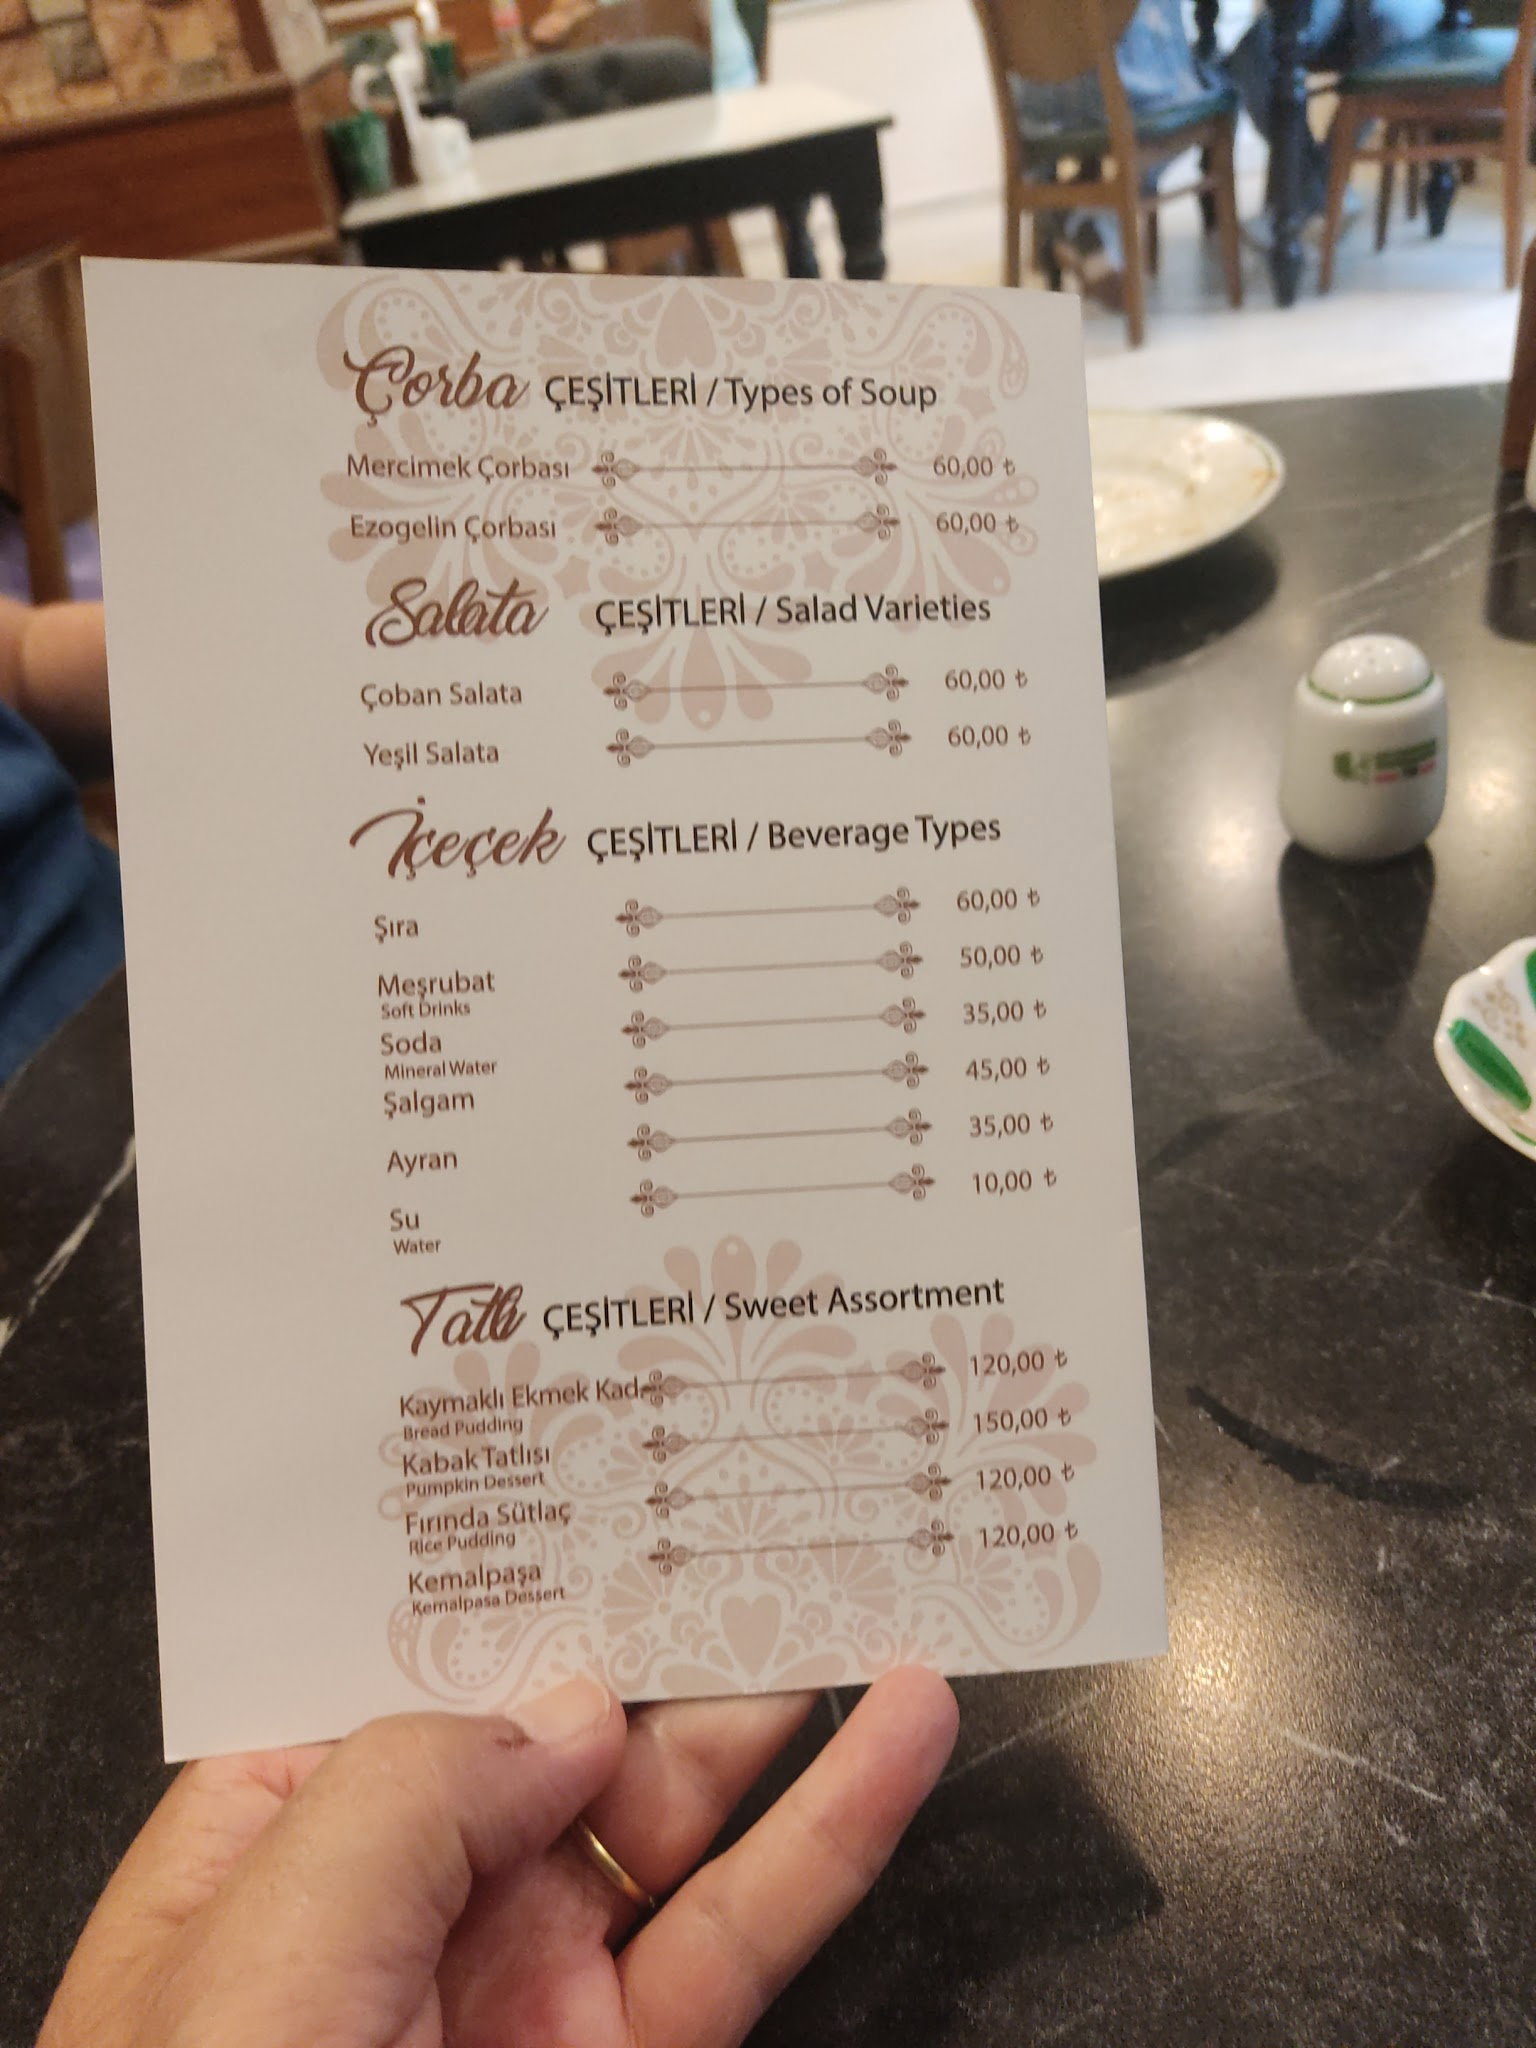 Çorba ÇEŞİTLERİ / Types of Soup
Mercimek Çorbası 60,00 ₺
Ezogelin Çorbası 60,00 ₺
Salata ÇEŞİTLERİ / Salad Varieties
Çoban Salata 60,00 ₺
Yeşil Salata 60,00 ₺
İçeçek ÇEŞİTLERİ / Beverage Types
Şıra 60,00 ₺
Meşrubat 50,00 ₺
Soft Drinks
Soda 35,00 ₺
Mineral Water
Şalgam 45,00 ₺
Ayran 35,00 ₺
Su 10,00 ₺
Water
Tatlı ÇEŞİTLERİ / Sweet Assortment
Kaymaklı Ekmek Kad 120,00 ₺
Bread Pudding
Kabak Tatlısı 150,00 ₺
Pumpkin Dessert
Fırında Sütlaç 120,00 ₺
Rice Pudding
Kemalpaşa 120,00 ₺
Kemalpasa Dessert